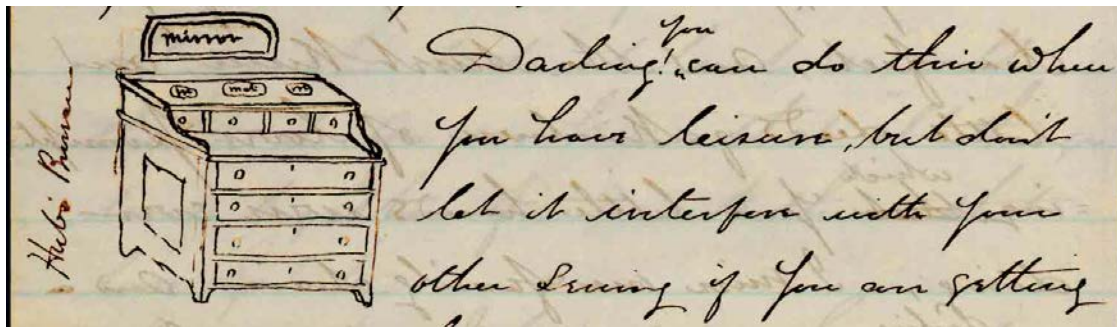 mirror
mat
Hub's Bureau
you
Darling! can do this when
you have leisure, but don't
let it interfere with your
other Sewing if you are getting